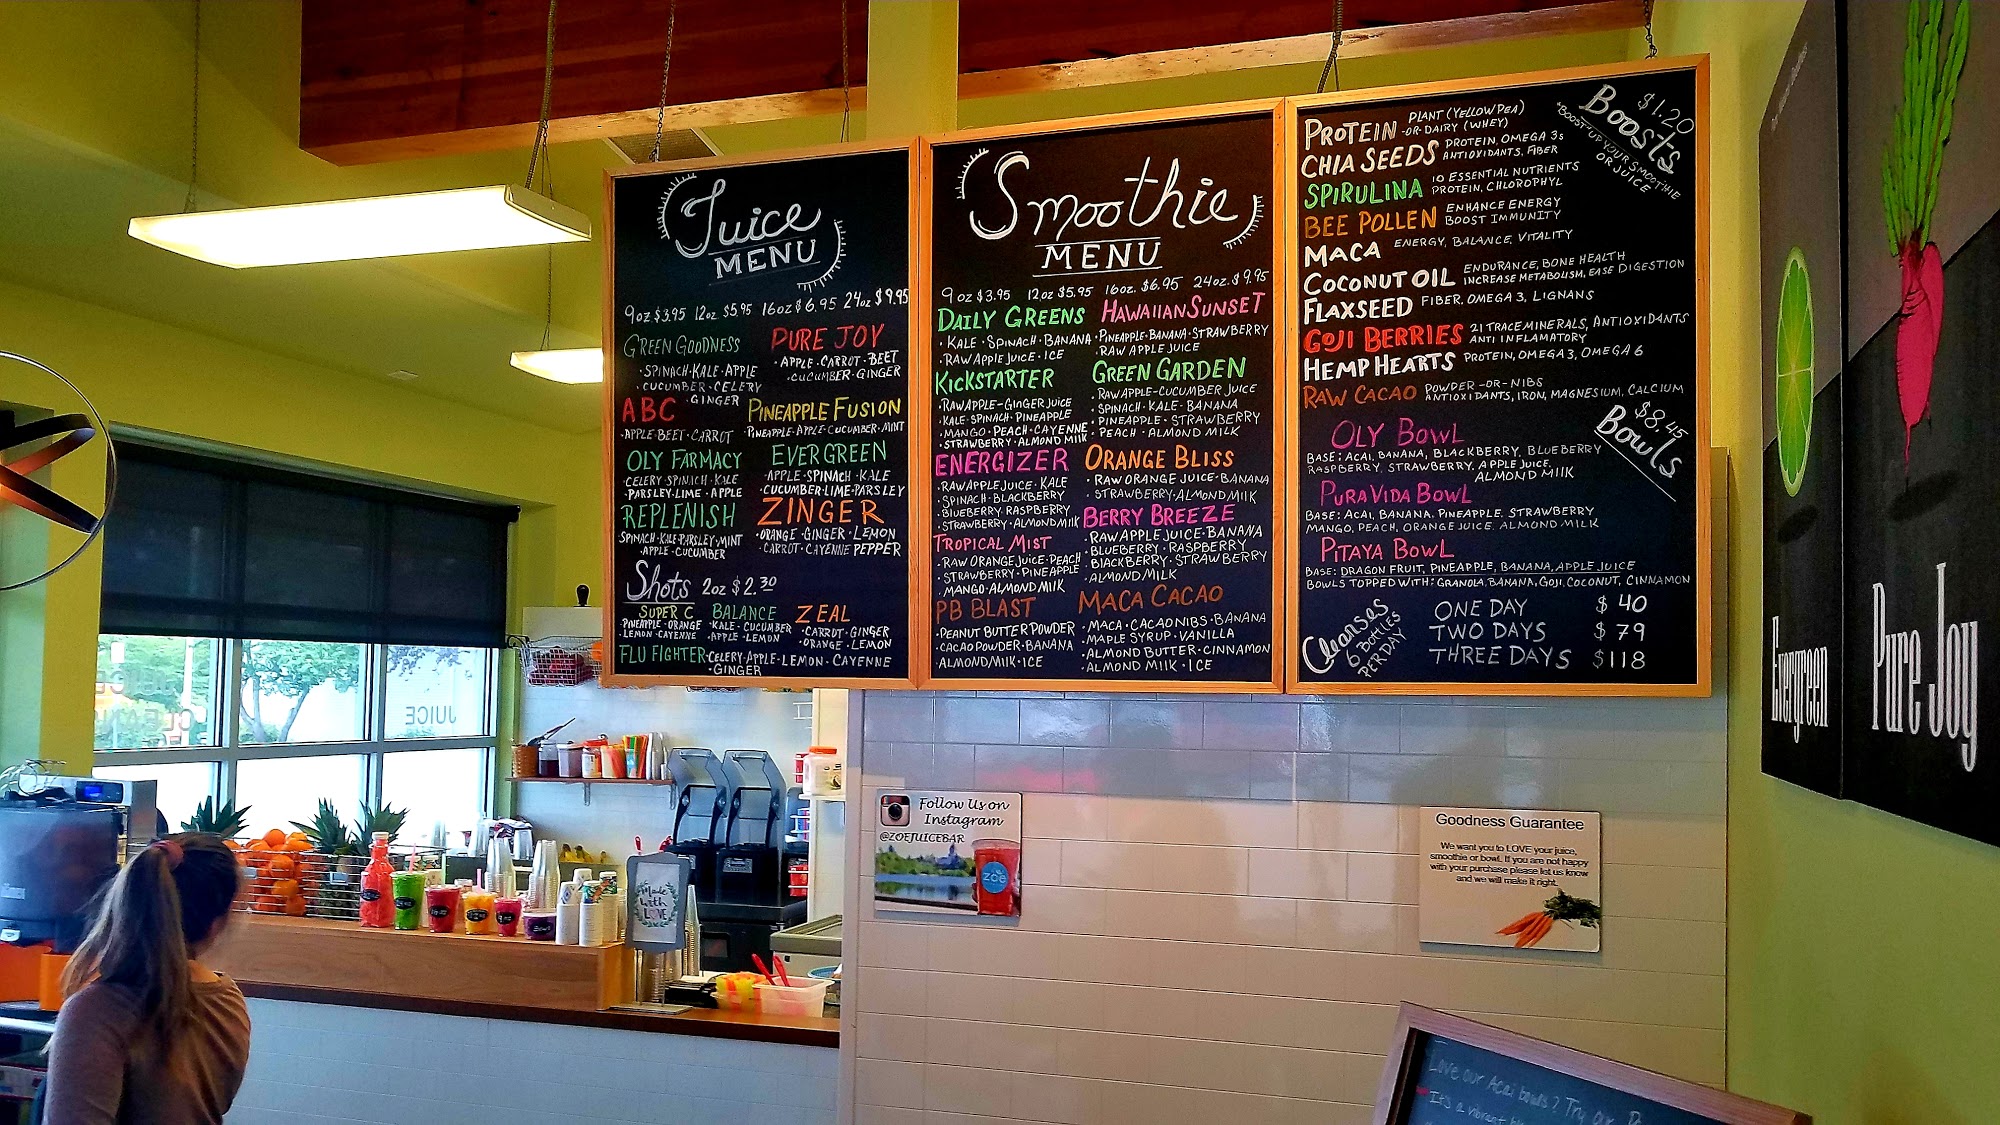 Juice
MENU
9oz $3.95 12oz $5.95 16oz $6.95 24oz $9.95
GREEN GOODNESS
· SPINACH · KALE · APPLE
· CUCUMBER · CELERY
· GINGER
PURE JOY
· APPLE · CARROT · BEET
· CUCUMBER · GINGER
ABC
· APPLE · BEET · CARROT
PINEAPPLE FUSION
· PINEAPPLE · APPLE · CUCUMBER · MINT
OLY FARMACY
CELERY · SPINACH · KALE
· PARSLEY · LIME · APPLE
EVERGREEN
· APPLE · SPINACH · KALE
CUCUMBER · LIME · PARSLEY
REPLENISH
SPINACH · KALE · PARSLEY · MINT
· APPLE · CUCUMBER
ZINGER
· ORANGE · GINGER · LEMON
· CARROT · CAYENNE PEPPER
Shots 2oz $2.30
SUPER C
PINEAPPLE · ORANGE
· LEMON · CAYENNE
BALANCE
· KALE · CUCUMBER
· APPLE · LEMON
ZEAL
· CARROT · GINGER
· ORANGE · LEMON
FLU FIGHTER · CELERY · APPLE · LEMON · CAYENNE
· GINGER
Smoothie
MENU
9oz $3.95 12oz $5.95 16oz. $6.95 24oz. $9.95
DAILY GREENS
· KALE · SPINACH · BANANA
· RAW APPLE JUICE · ICE
HAWAIIAN SUNSET
· PINEAPPLE · BANANA · STRAWBERRY
· RAW APPLE JUICE
KICKSTARTER
· RAW APPLE - GINGER JUICE
KALE · SPINACH · PINEAPPLE
· MANGO · PEACH · CAYENNE
· STRAWBERRY · ALMOND MILK
GREEN GARDEN
· RAW APPLE - CUCUMBER JUICE
· SPINACH · KALE · BANANA
· PINEAPPLE · STRAWBERRY
· PEACH · ALMOND MILK
ENERGIZER
· RAW APPLE JUICE · KALE
· SPINACH · BLACKBERRY
· BLUEBERRY · RASPBERRY
· STRAWBERRY · ALMOND MILK
ORANGE BLISS
· RAW ORANGE JUICE · BANANA
· STRAWBERRY · ALMOND MILK
TROPICAL MIST
· RAW ORANGE JUICE · PEACH
· STRAWBERRY · PINEAPPLE
· MANGO · ALMOND MILK
BERRY BREEZE
· RAW APPLE JUICE · BANANA
· BLUEBERRY · RASPBERRY
· BLACKBERRY · STRAWBERRY
· ALMOND MILK
PB BLAST
· PEANUT BUTTER POWDER
· CACAO POWDER · BANANA
· ALMOND MILK · ICE
MACA CACAO
· MACA · CACAO NIBS · BANANA
· MAPLE SYRUP · VANILLA
· ALMOND BUTTER · CINNAMON
· ALMOND MILK · ICE
Boosts $1.20
*BOOST UP YOUR SMOOTHIE
OR JUICE
PROTEIN PLANT (YELLOW PEA)
-OR- DAIRY (WHEY)
CHIA SEEDS PROTEIN, OMEGA 3s
ANTIOXIDANTS, FIBER
SPIRULINA 10 ESSENTIAL NUTRIENTS
PROTEIN, CHLOROPHYL
BEE POLLEN ENHANCE ENERGY
BOOST IMMUNITY
MACA ENERGY, BALANCE, VITALITY
COCONUT OIL ENDURANCE, BONE HEALTH
INCREASE METABOLISM, EASE DIGESTION
FLAXSEED FIBER, OMEGA 3, LIGNANS
GOJI BERRIES 21 TRACE MINERALS, ANTIOXIDANTS
ANTI INFLAMATORY
HEMP HEARTS PROTEIN, OMEGA 3, OMEGA 6
RAW CACAO POWDER -OR- NIBS
ANTIOXIDANTS, IRON, MAGNESIUM, CALCIUM
Bowls $8.45
OLY BOWL
BASE: ACAI, BANANA, BLACKBERRY, BLUEBERRY
RASPBERRY, STRAWBERRY, APPLE JUICE,
ALMOND MILK
PURA VIDA BOWL
BASE: ACAI, BANANA, PINEAPPLE, STRAWBERRY
MANGO, PEACH, ORANGE JUICE, ALMOND MILK
PITAYA BOWL
BASE: DRAGON FRUIT, PINEAPPLE, BANANA, APPLE JUICE
BOWLS TOPPED WITH: GRANOLA, BANANA, GOJI, COCONUT, CINNAMON
Cleanses
6 BOTTLES
PER DAY
ONE DAY $40
TWO DAYS $79
THREE DAYS $118
Evergreen
Pure Joy
JUICE
Made
with
LOVE
Follow Us on
Instagram
@ZOEJUICEBAR
zoe
Goodness Guarantee
We want you to LOVE your juice,
smoothie or bowl. If you are not happy
with your purchase please let us know
and we will make it right.
Love our Acai bowls? Try our
It's a vibrant